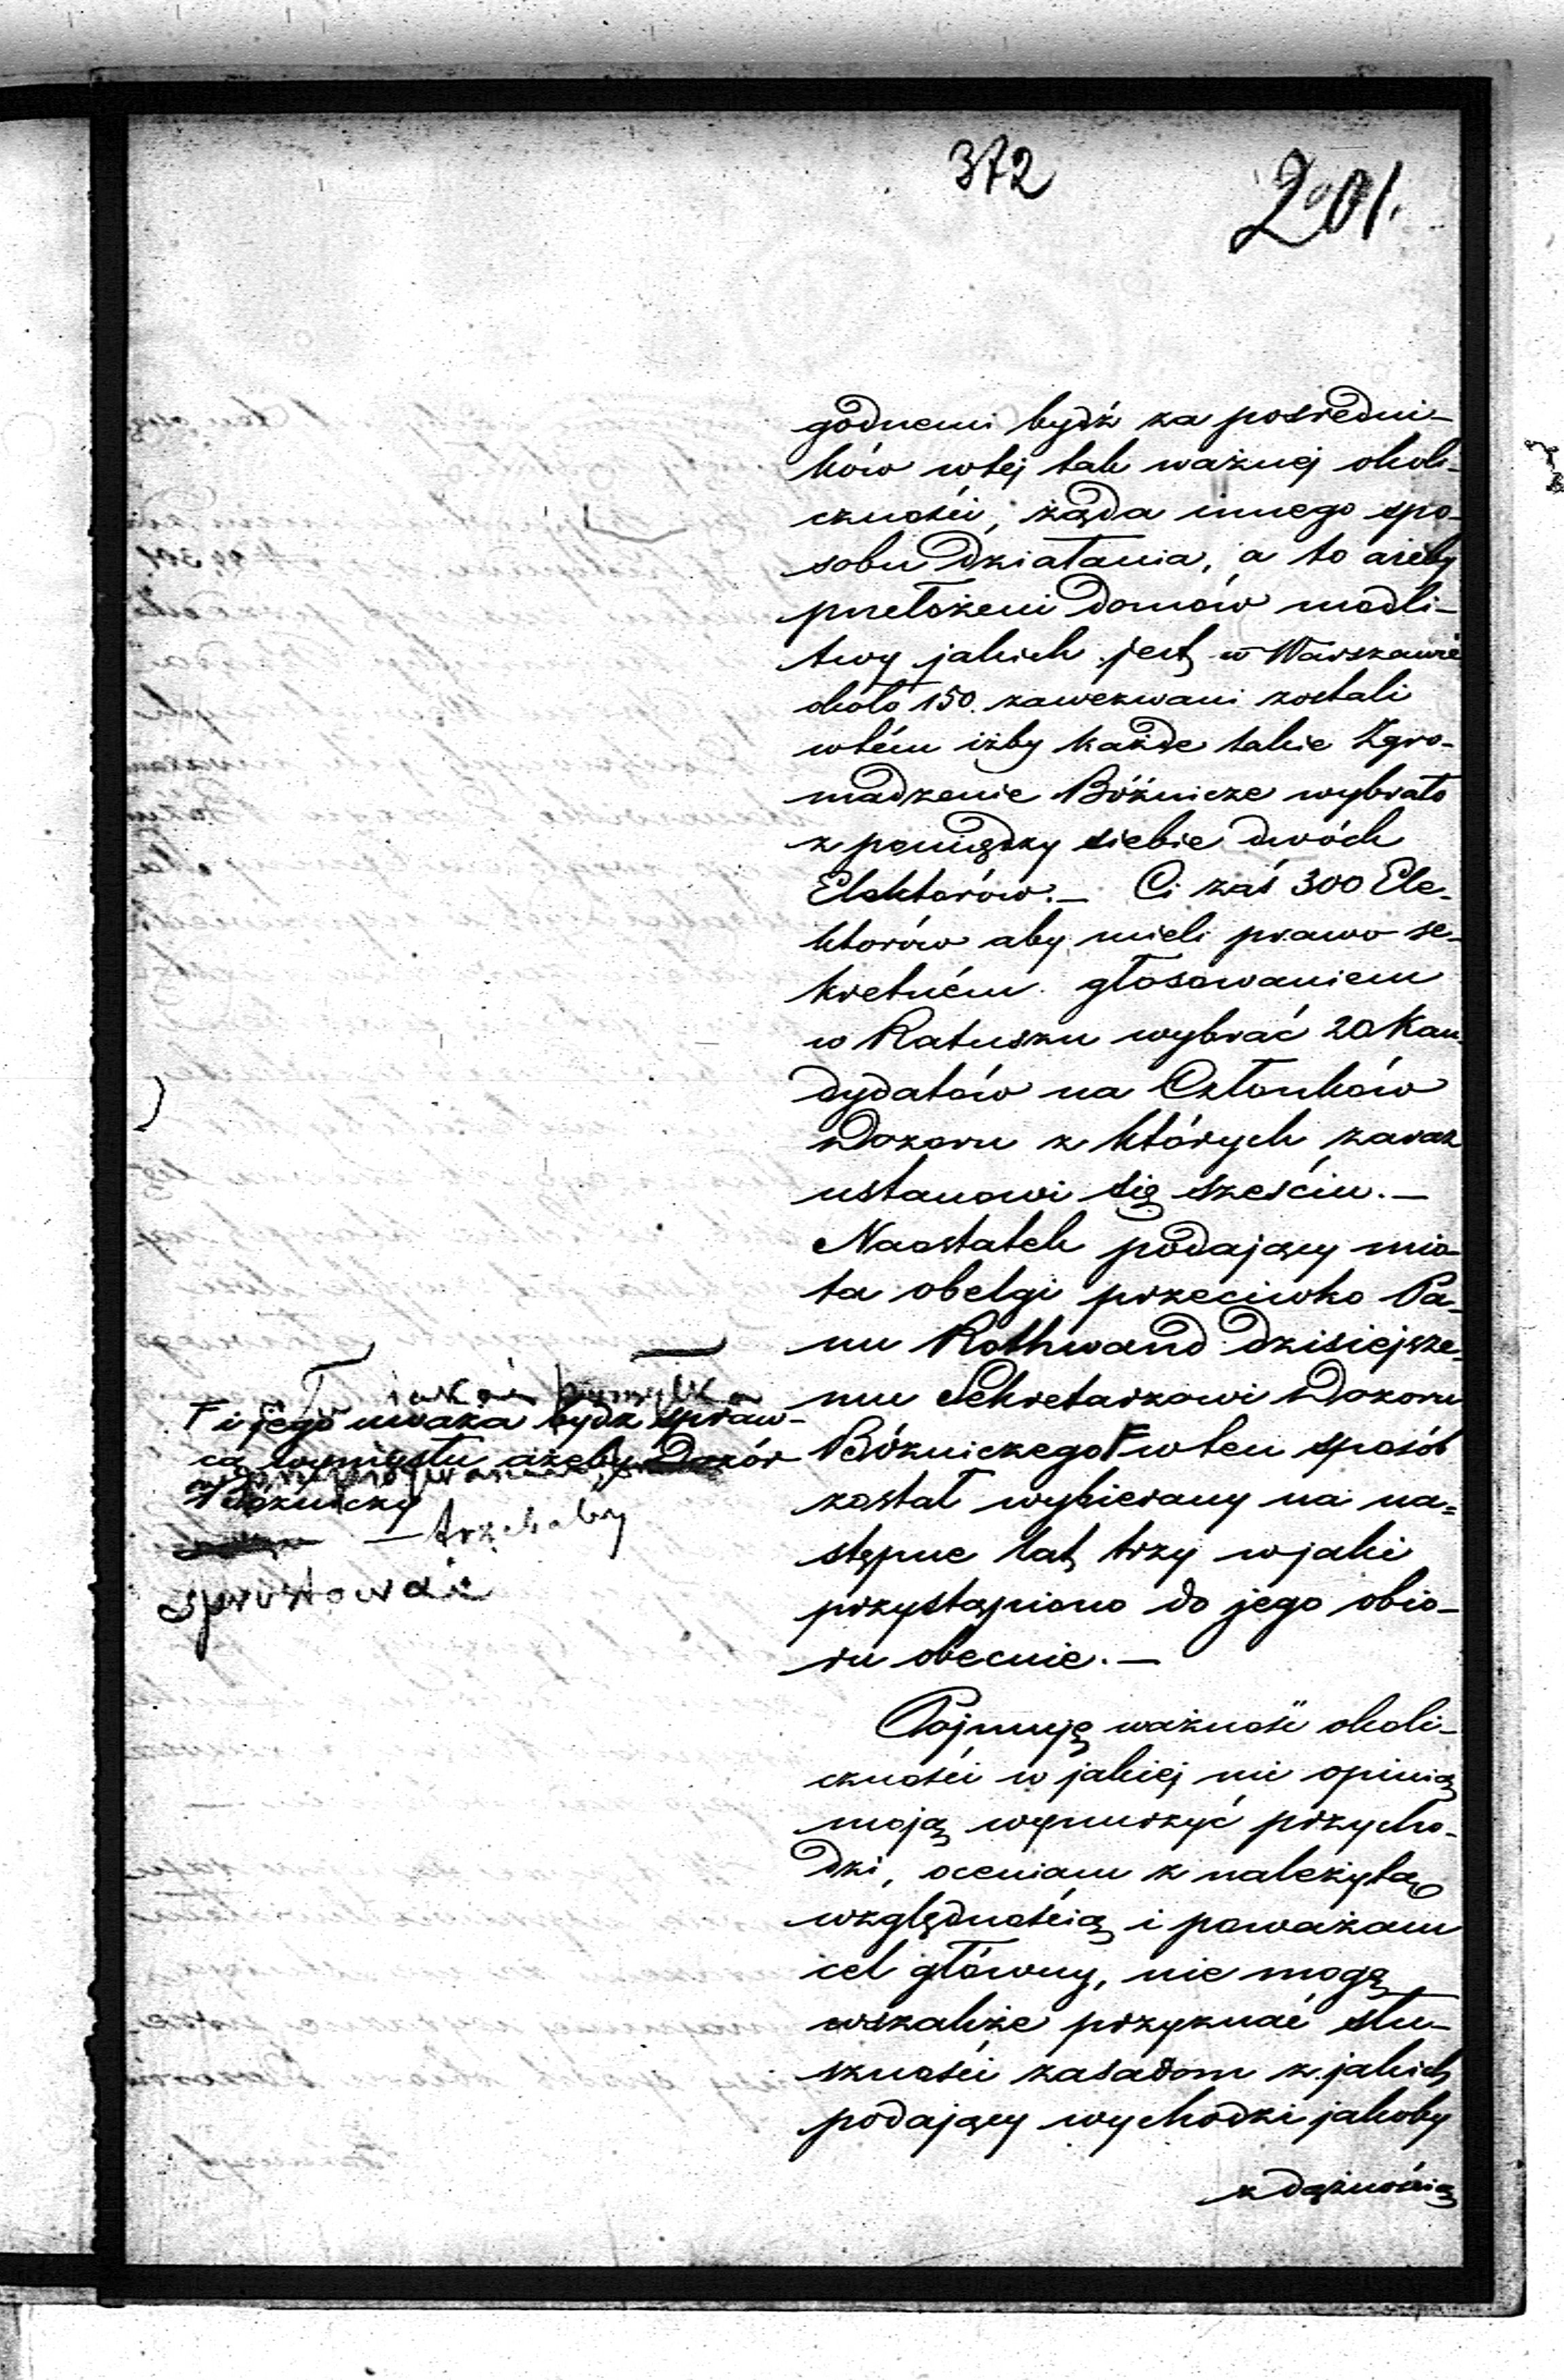 372
201.
godnemi bydź za pośredni-
ków wtéj tak ważnéj okoli-
czności, żąda innego spo-
sobu działania, a to ażeby
przełożeni domów modli-
twy jakich jest w Warszawie
około 150. zawezwani zostali
wtém iżby każde takie Zgro-
madzenie Bóżnicze wybrało
z pomiędzy siebie dwóch
Elektorów. — Ci zaś 300 Ele-
ktorów aby mieli prawo se-
kretném głosowaniem
w Ratuszu wybrać 20 Kan-
dydatów na Członków
Dozoru z których zaraz
ustanowi się sześciu. —
Naostatek podający mio-
ta obelgi przeciwko Pa-
nu Rothwand dzisiejsze-
mu Sekretarzowi Dozoru
Bóżniczego F w ten sposób
został wybierany na na-
stępne lat trzy w jaki
przystąpiono do jego obio-
ru obecnie. —
Tu jakaś pomyłka
F i jego uważa bydź spraw-
cą wymysłu ażeby Dozór
Bóżniczy
— trzebaby
sprostować
Pojmuję ważność okoli-
czności w jakiej mi opinią
moją wynurzyć przycho-
dzi, oceniam z należytą
względnością i poważam
cel główny, nie mogę
wszakże przyznać słu-
szności zasadom z jakich
podający wychodzi jakoby
z dążnością